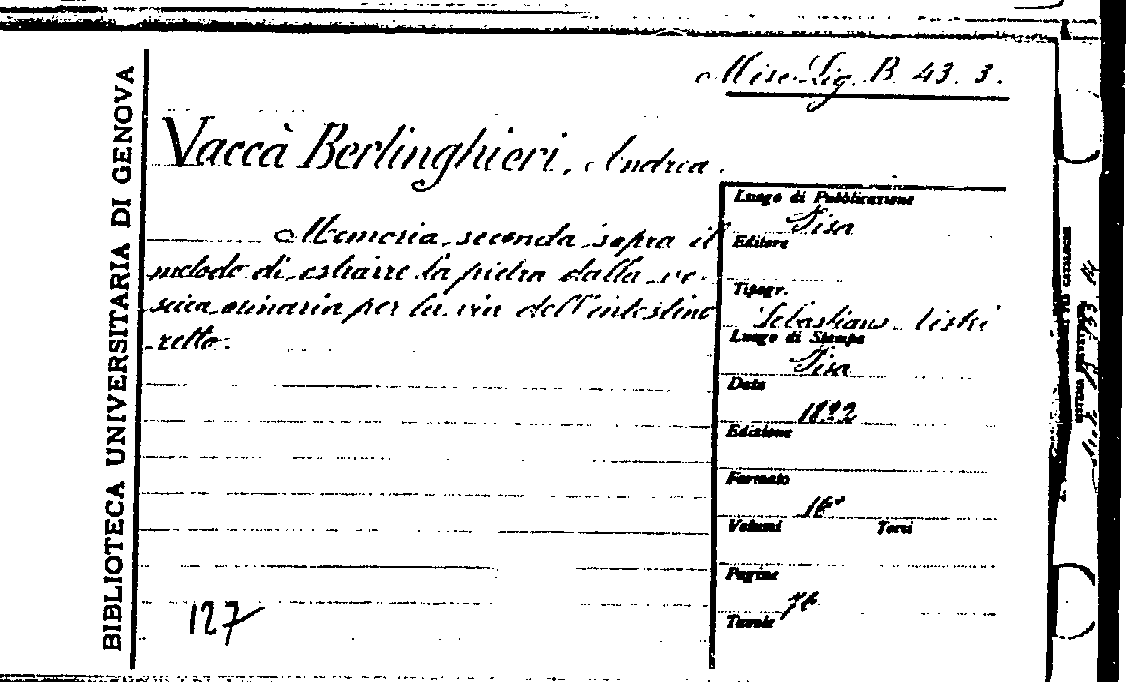 BIBLIOTECA UNIVERSITARIA DI GENOVA
Misc. Lig. B. 43. 3.
Vaccà Berlinghieri, Andrea.
Memoria seconda sopra il
metodo di estrarre la pietra dalla ve-
scica orinaria per la via dell'intestino
retto.
127
Luogo di Pubblicazione
Pisa
Editore
Tipogr.
Sebastiano Nistri
Luogo di Stampa
Pisa
Data
1822
Edizione
Formato
16°
Volumi Tomi
Pagine
76
Tavole